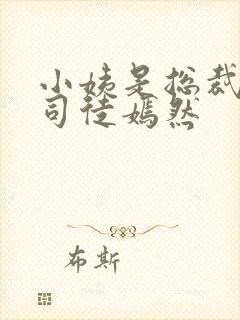 小姨是总裁
司徒嫣然
布斯